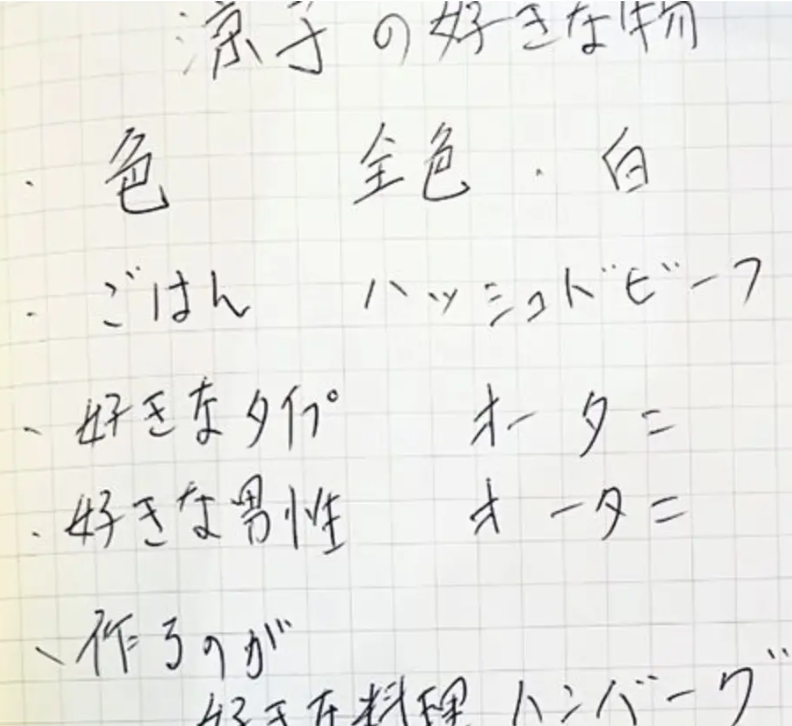 涼子の好きな物
・ 色 全色・白
・ ごはん ハッシュドビーフ
、好きなタイプ オータニ
・好きな男性 オータニ
、作るのが
好きな料理 ハンバーグ